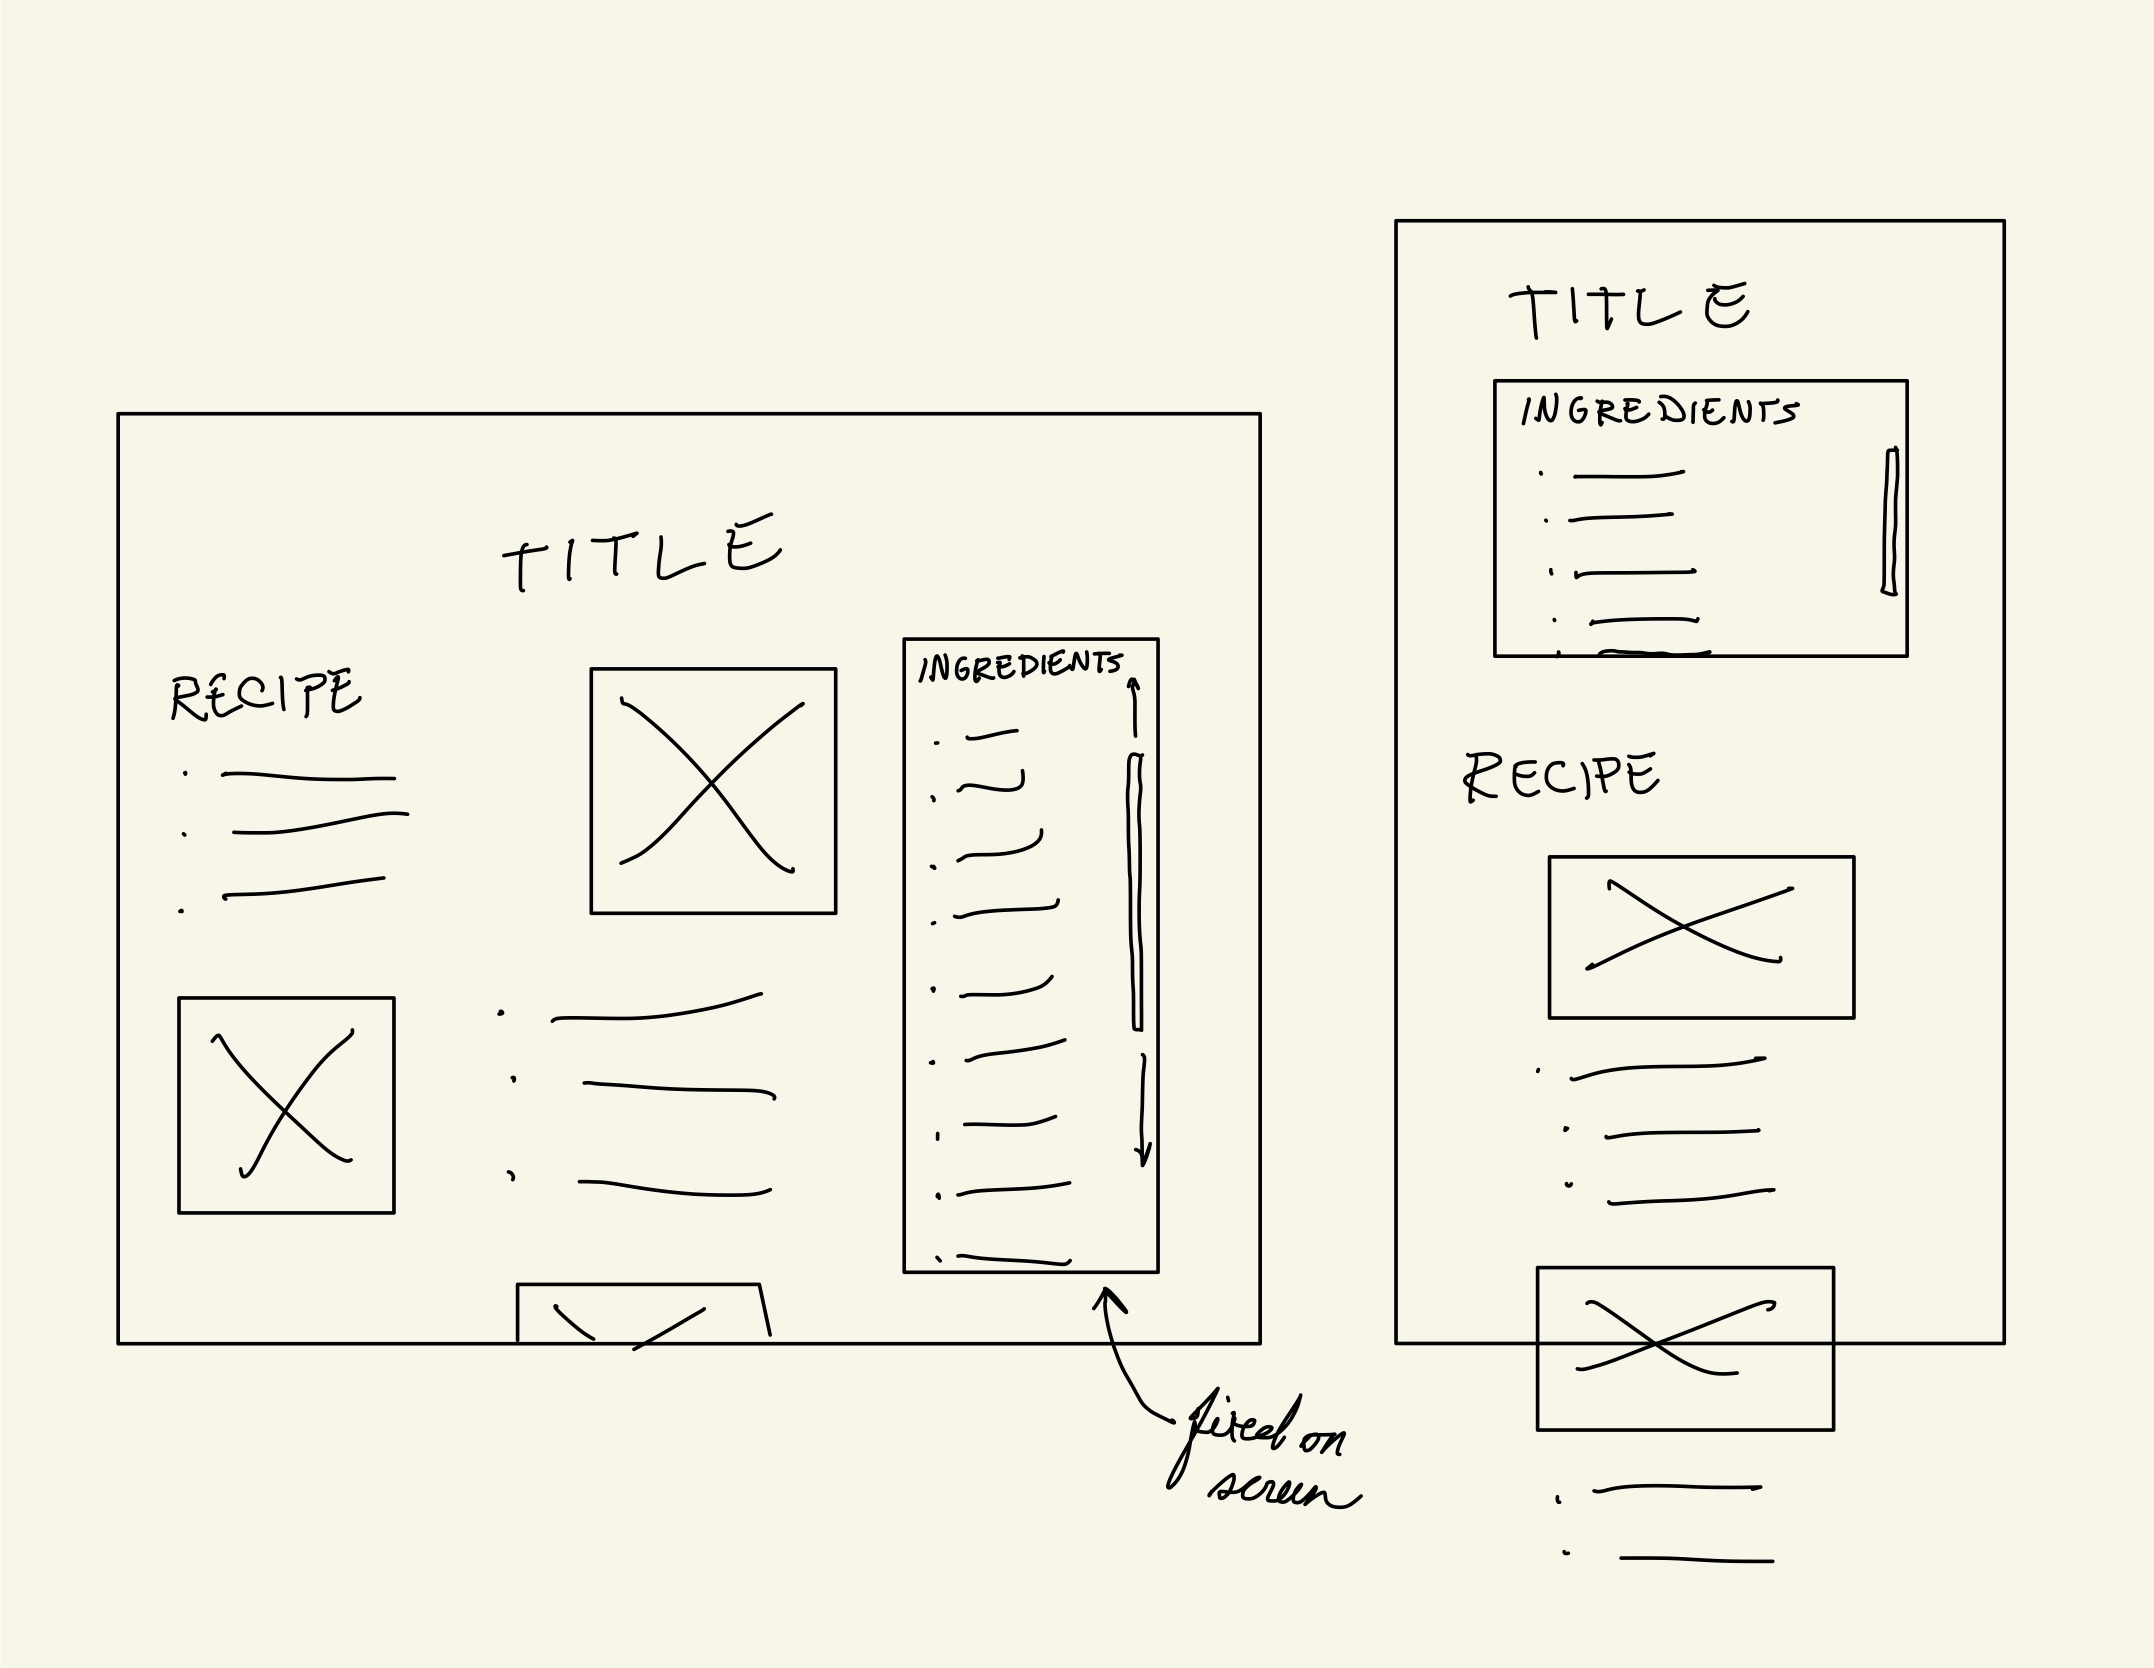 TITLE
RECIPE
INGREDIENTS
fixed on
screen
TITLE
INGREDIENTS
RECIPE